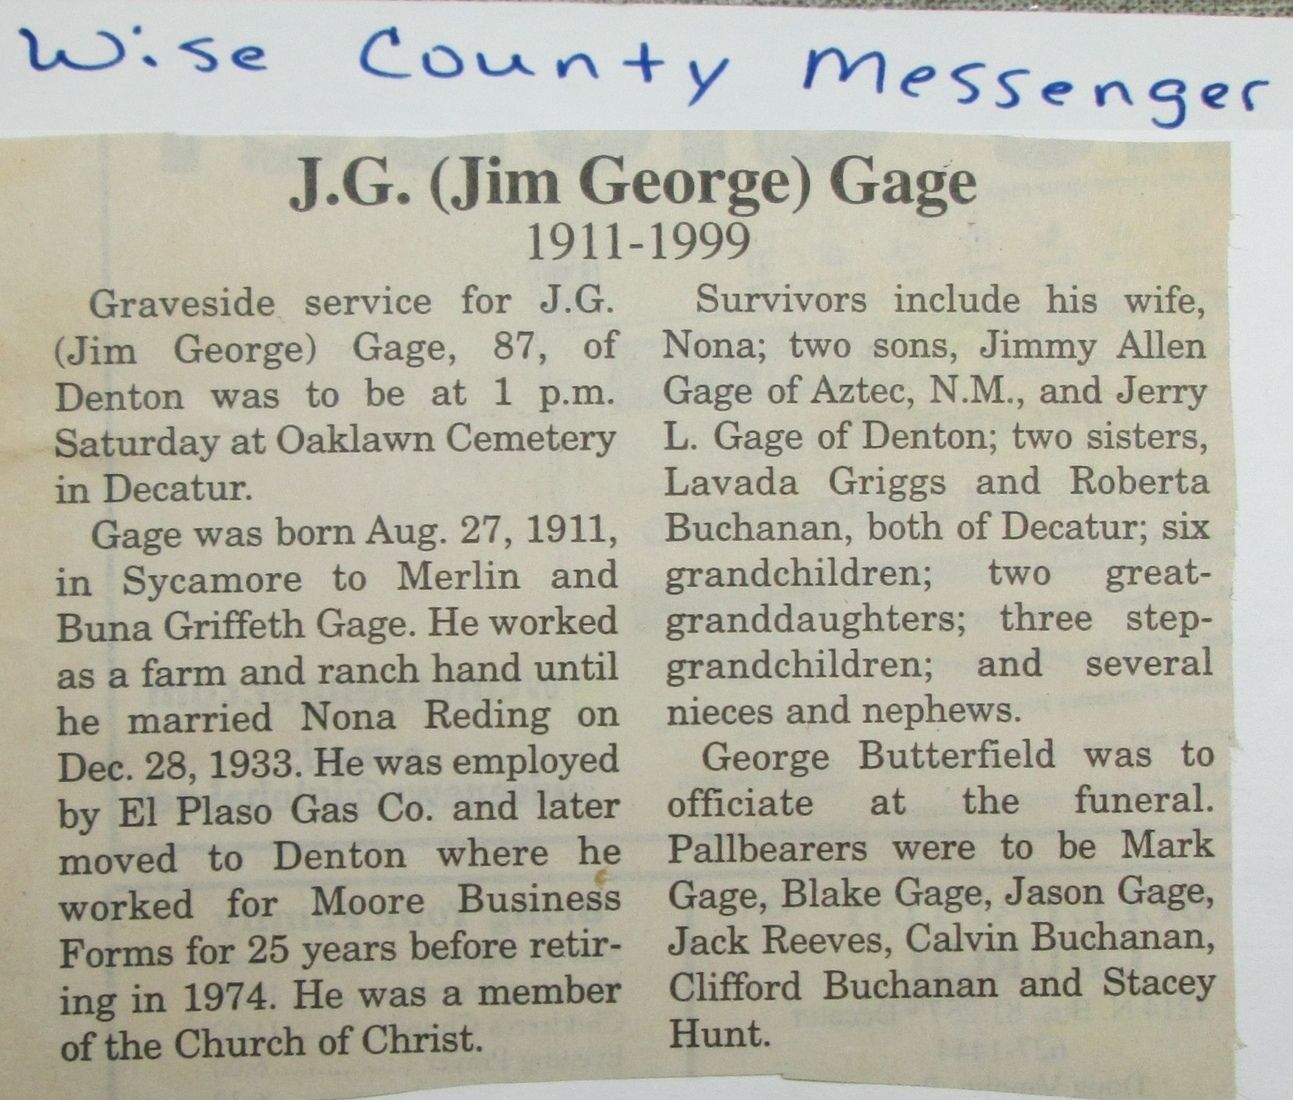 Wise County Messenger
J.G. (Jim George) Gage
1911-1999
Graveside service for J.G.
(Jim George) Gage, 87, of
Denton was to be at 1 p.m.
Saturday at Oaklawn Cemetery
in Decatur.
Gage was born Aug. 27, 1911,
in Sycamore to Merlin and
Buna Griffeth Gage. He worked
as a farm and ranch hand until
he married Nona Reding on
Dec. 28, 1933. He was employed
by El Plaso Gas Co. and later
moved to Denton where he
worked for Moore Business
Forms for 25 years before retir-
ing in 1974. He was a member
of the Church of Christ.
Survivors include his wife,
Nona; two sons, Jimmy Allen
Gage of Aztec, N.M., and Jerry
L. Gage of Denton; two sisters,
Lavada Griggs and Roberta
Buchanan, both of Decatur; six
grandchildren; two great-
granddaughters; three step-
grandchildren; and several
nieces and nephews.
George Butterfield was to
officiate at the funeral.
Pallbearers were to be Mark
Gage, Blake Gage, Jason Gage,
Jack Reeves, Calvin Buchanan,
Clifford Buchanan and Stacey
Hunt.